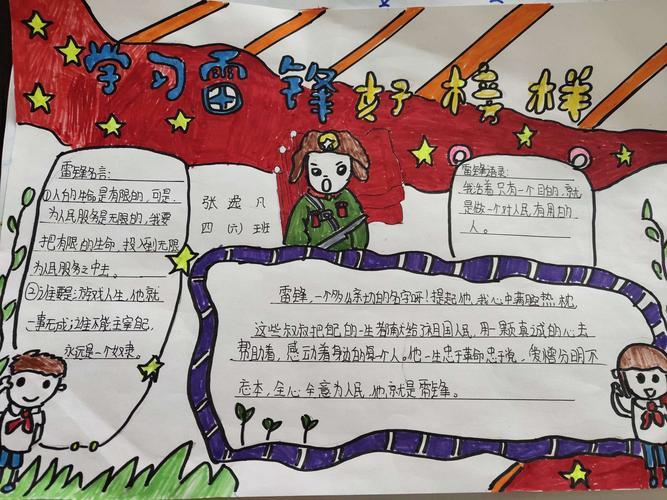 学习雷锋好榜样
雷锋名言:
①人的生命是有限的,可是,
为人民服务是无限的,我要
把有限的生命,投入到无限
为人民服务之中去。
②谁要是游戏人生,他就
一事无成;谁不能主宰自己,
永远是一个奴隶。
张逸凡
四(六)班
雷锋语录:
我活着只有一个目的,就
是做一个对人民有用的
人。
雷锋,一个多么亲切的名字呀!提起他,我心中满腔热枕
这些叔叔把自己的一生都献给祖国人民,用一颗真诚的心去
帮助着,感动着身边的每个人。他一生忠于革命忠于党,爱憎分明不
忘本,全心全意为人民,他就是雷锋。